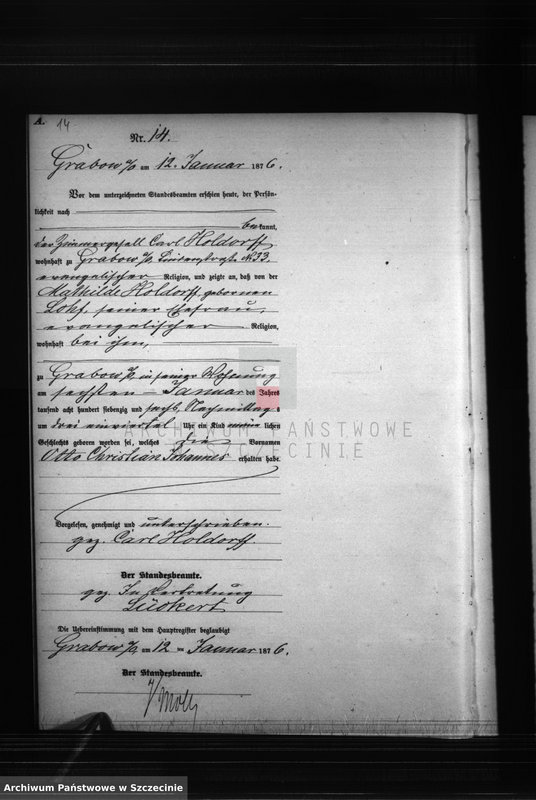 A. 14
Nr. 14.
Grabow a/O am 12. Januar 1876.
Vor dem unterzeichneten Standesbeamten erschien heute, der Persön-
lichkeit nach
bekannt,
der Zimmergesell Carl Holdorff
wohnhaft zu Grabow a/O Lindenstraße N 33,
evangelischer Religion, und zeigte an, daß von der
Mathilde Holdorff, gebornen
seiner Ehefrau,
evangelischer Religion,
wohnhaft bei ihm,
zu Grabow a/O, in seiner Wohnung
am sechsten Januar des Jahres
tausend acht hundert siebenzig und sechs, Nachmittags
um drei einviertel Uhr ein Kind männlichen
Geschlechts geboren worden sei, welches die Vornamen
Otto Christian Johannes erhalten habe.
Vorgelesen, genehmigt und unterschrieben.
gez. Carl Holdorff.
Der Standesbeamte.
gez. In Vertretung
Lüdkert
Die Uebereinstimmung mit dem Hauptregister beglaubigt
Grabow a/O am 12 ten Januar 1876.
Der Standesbeamte.
ARCHIWUM PAŃSTWOWE
W SZCZECINIE
Archiwum Państwowe w Szczecinie